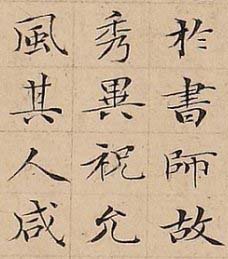 於書師故
秀異祝允
風其人咸